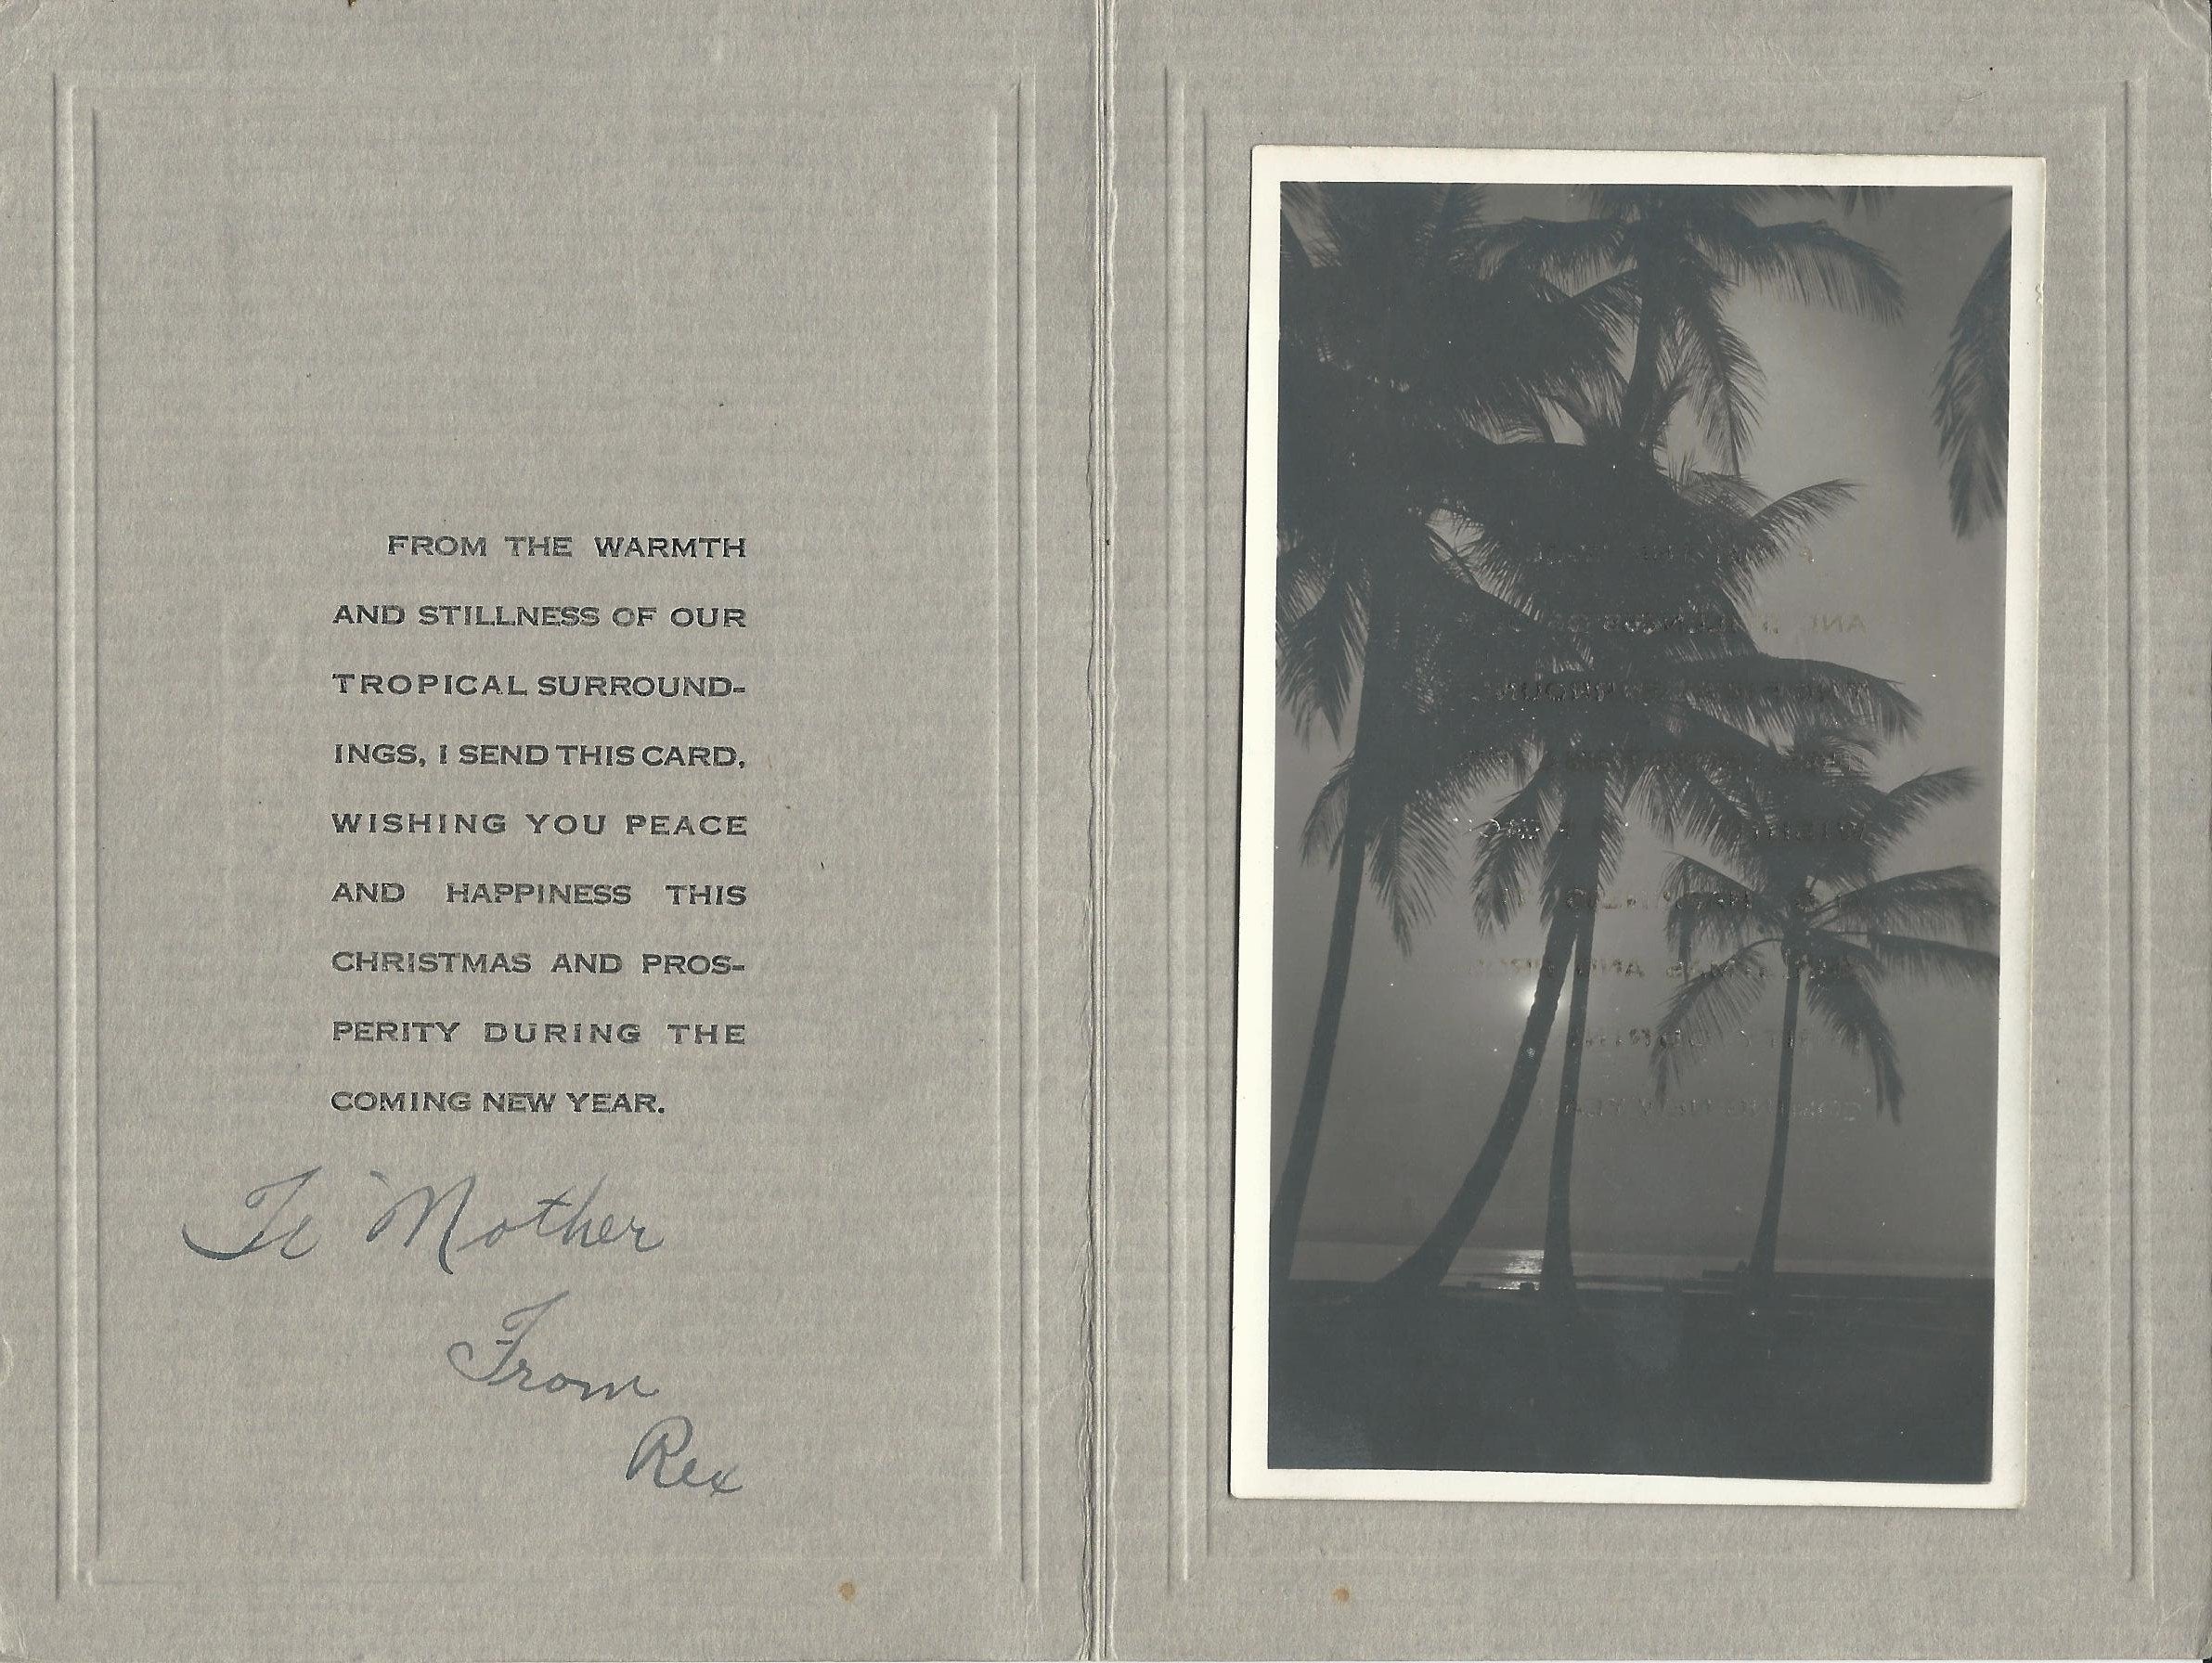 FROM THE WARMTH
AND STILLNESS OF OUR
TROPICAL SURROUND-
INGS, I SEND THIS CARD,
WISHING YOU PEACE
AND HAPPINESS THIS
CHRISTMAS AND PROS-
PERITY DURING THE
COMING NEW YEAR.
To Mother
From
Rex